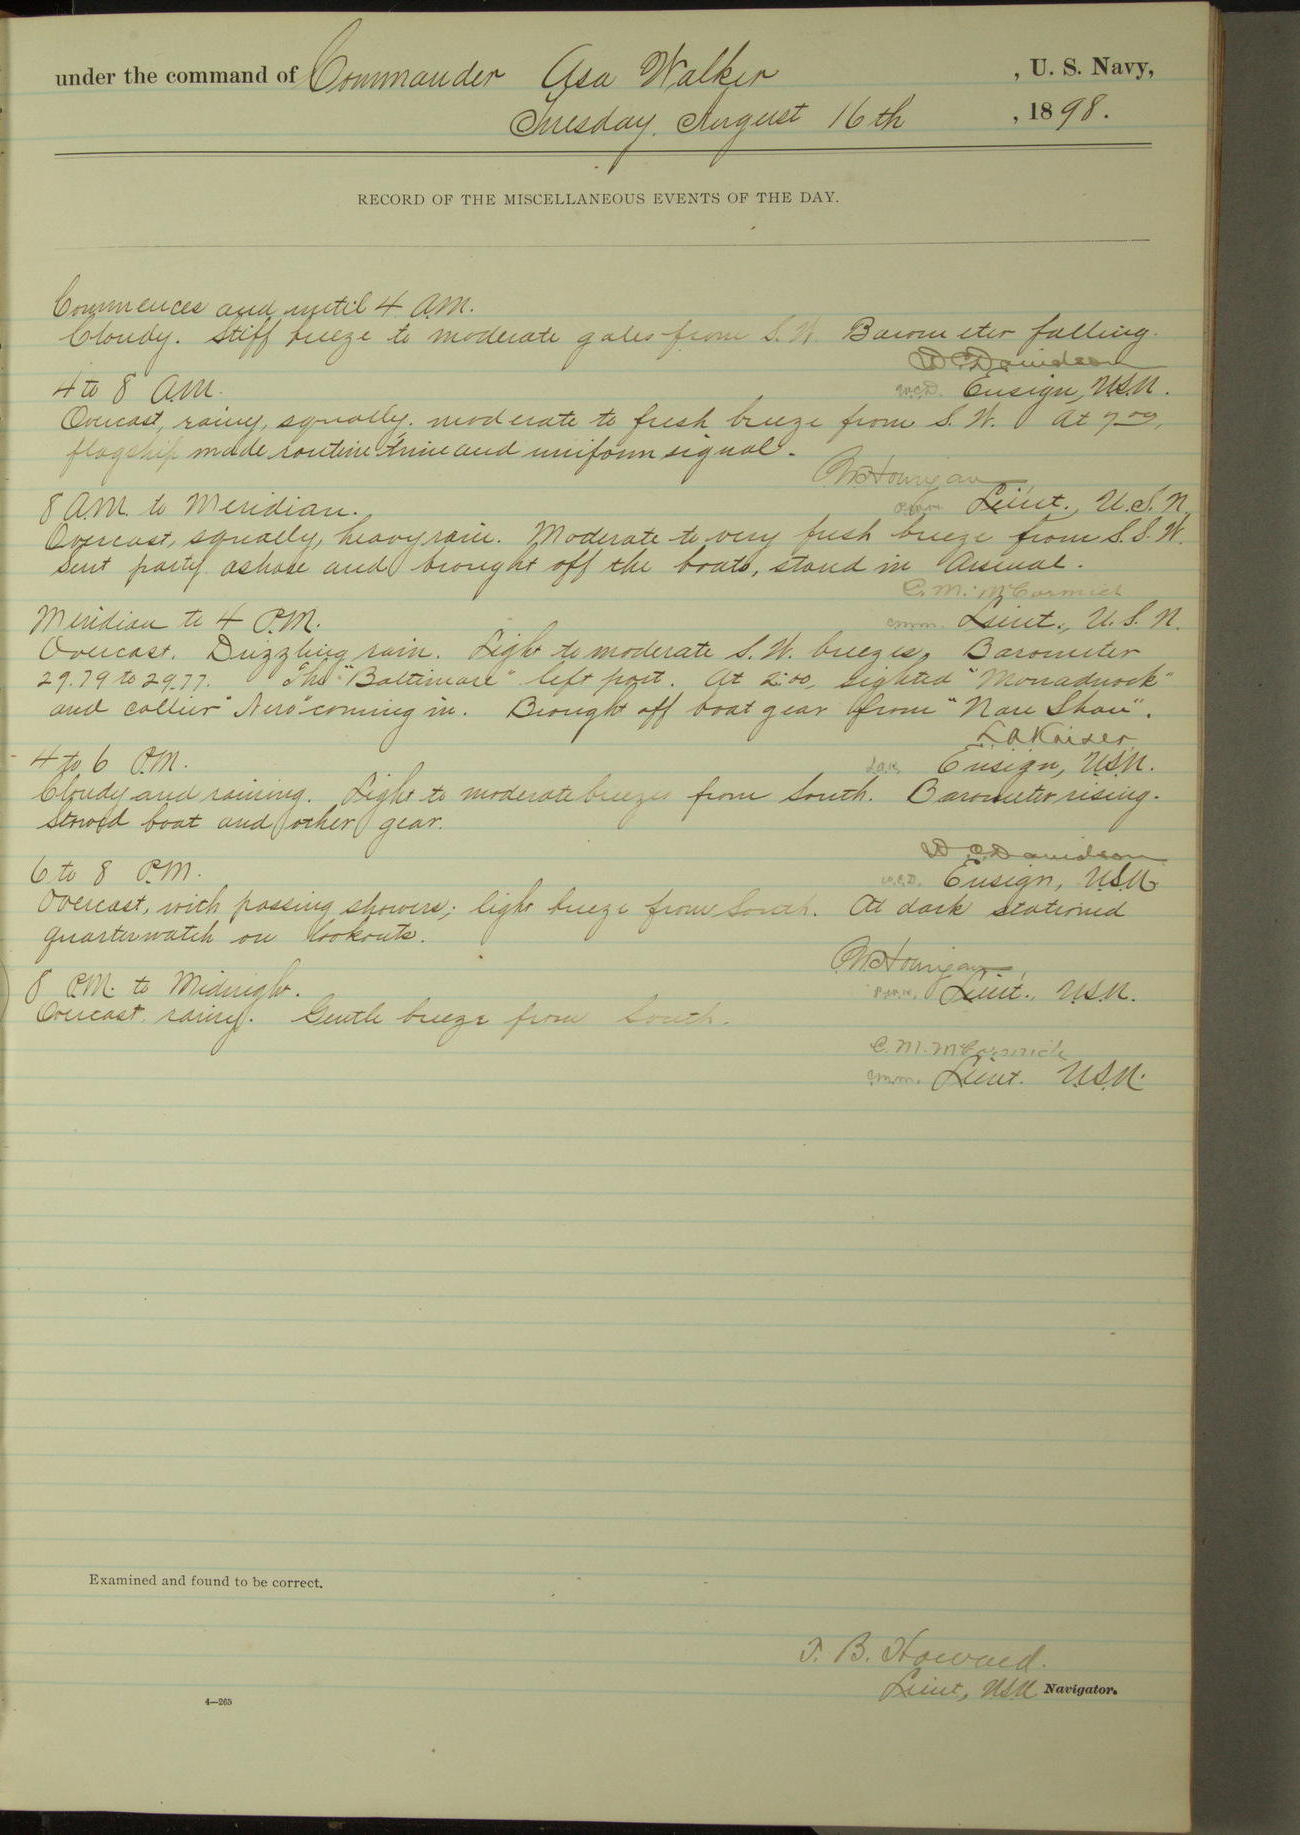 under the command of Commander Asa Walker , U. S. Navy,
Tuesday, August 16th , 1898.
RECORD OF THE MISCELLANEOUS EVENTS OF THE DAY.
Commences and until 4 A.M.
Cloudy. Stiff breeze to moderate gales from S.W. Barometer falling.
W C Davidson
W.C.D. Ensign, U.S.N.
4 to 8 A.M.
Overcast, rainy, squally, moderate to fresh breeze from S. W. At 7 00,
flagship made routine time and uniform signal.
P W Hourigan
P.W.H. Lieut., U.S.N.
8 A.M. to Meridian.
Overcast, squally, heavy rain. Moderate to very fresh breeze from S.S.W.
Sent party ashore and brought off the boats, stand in Arsenal.
C. M. McCormick
C.M.M. Lieut., U.S.N.
Meridian to 4 P.M.
Overcast. Druzzling rain. Light to moderate S.W. breezes. Barometer
29.79 to 29.77. The "Baltimore" left port. At 2:00, sighted "Monadnock"
and collier "Nero" coming in. Brought off boat gear from "Nan Shan".
L A Kaiser
L.A.K. Ensign, U.S.N.
4 to 6 P.M.
Cloudy and raining. Light to moderate breezes from South. Barometer rising.
Stowed boat and other gear.
W C Davidson
W.C.D. Ensign, U.S.N.
6 to 8 P.M.
Overcast, with passing showers; light breeze from South. At dark stationed
quarterwatch on lookouts.
P W Hourigan
P.W.H. Lieut., U.S.N.
8 P.M. to Midnight.
Overcast, rainy. Gentle breeze from South.
C. M. McCormick
C.M.M. Lieut. U.S.N.
Examined and found to be correct.
T. B. Howard.
Lieut, U.S.N Navigator.
4—265